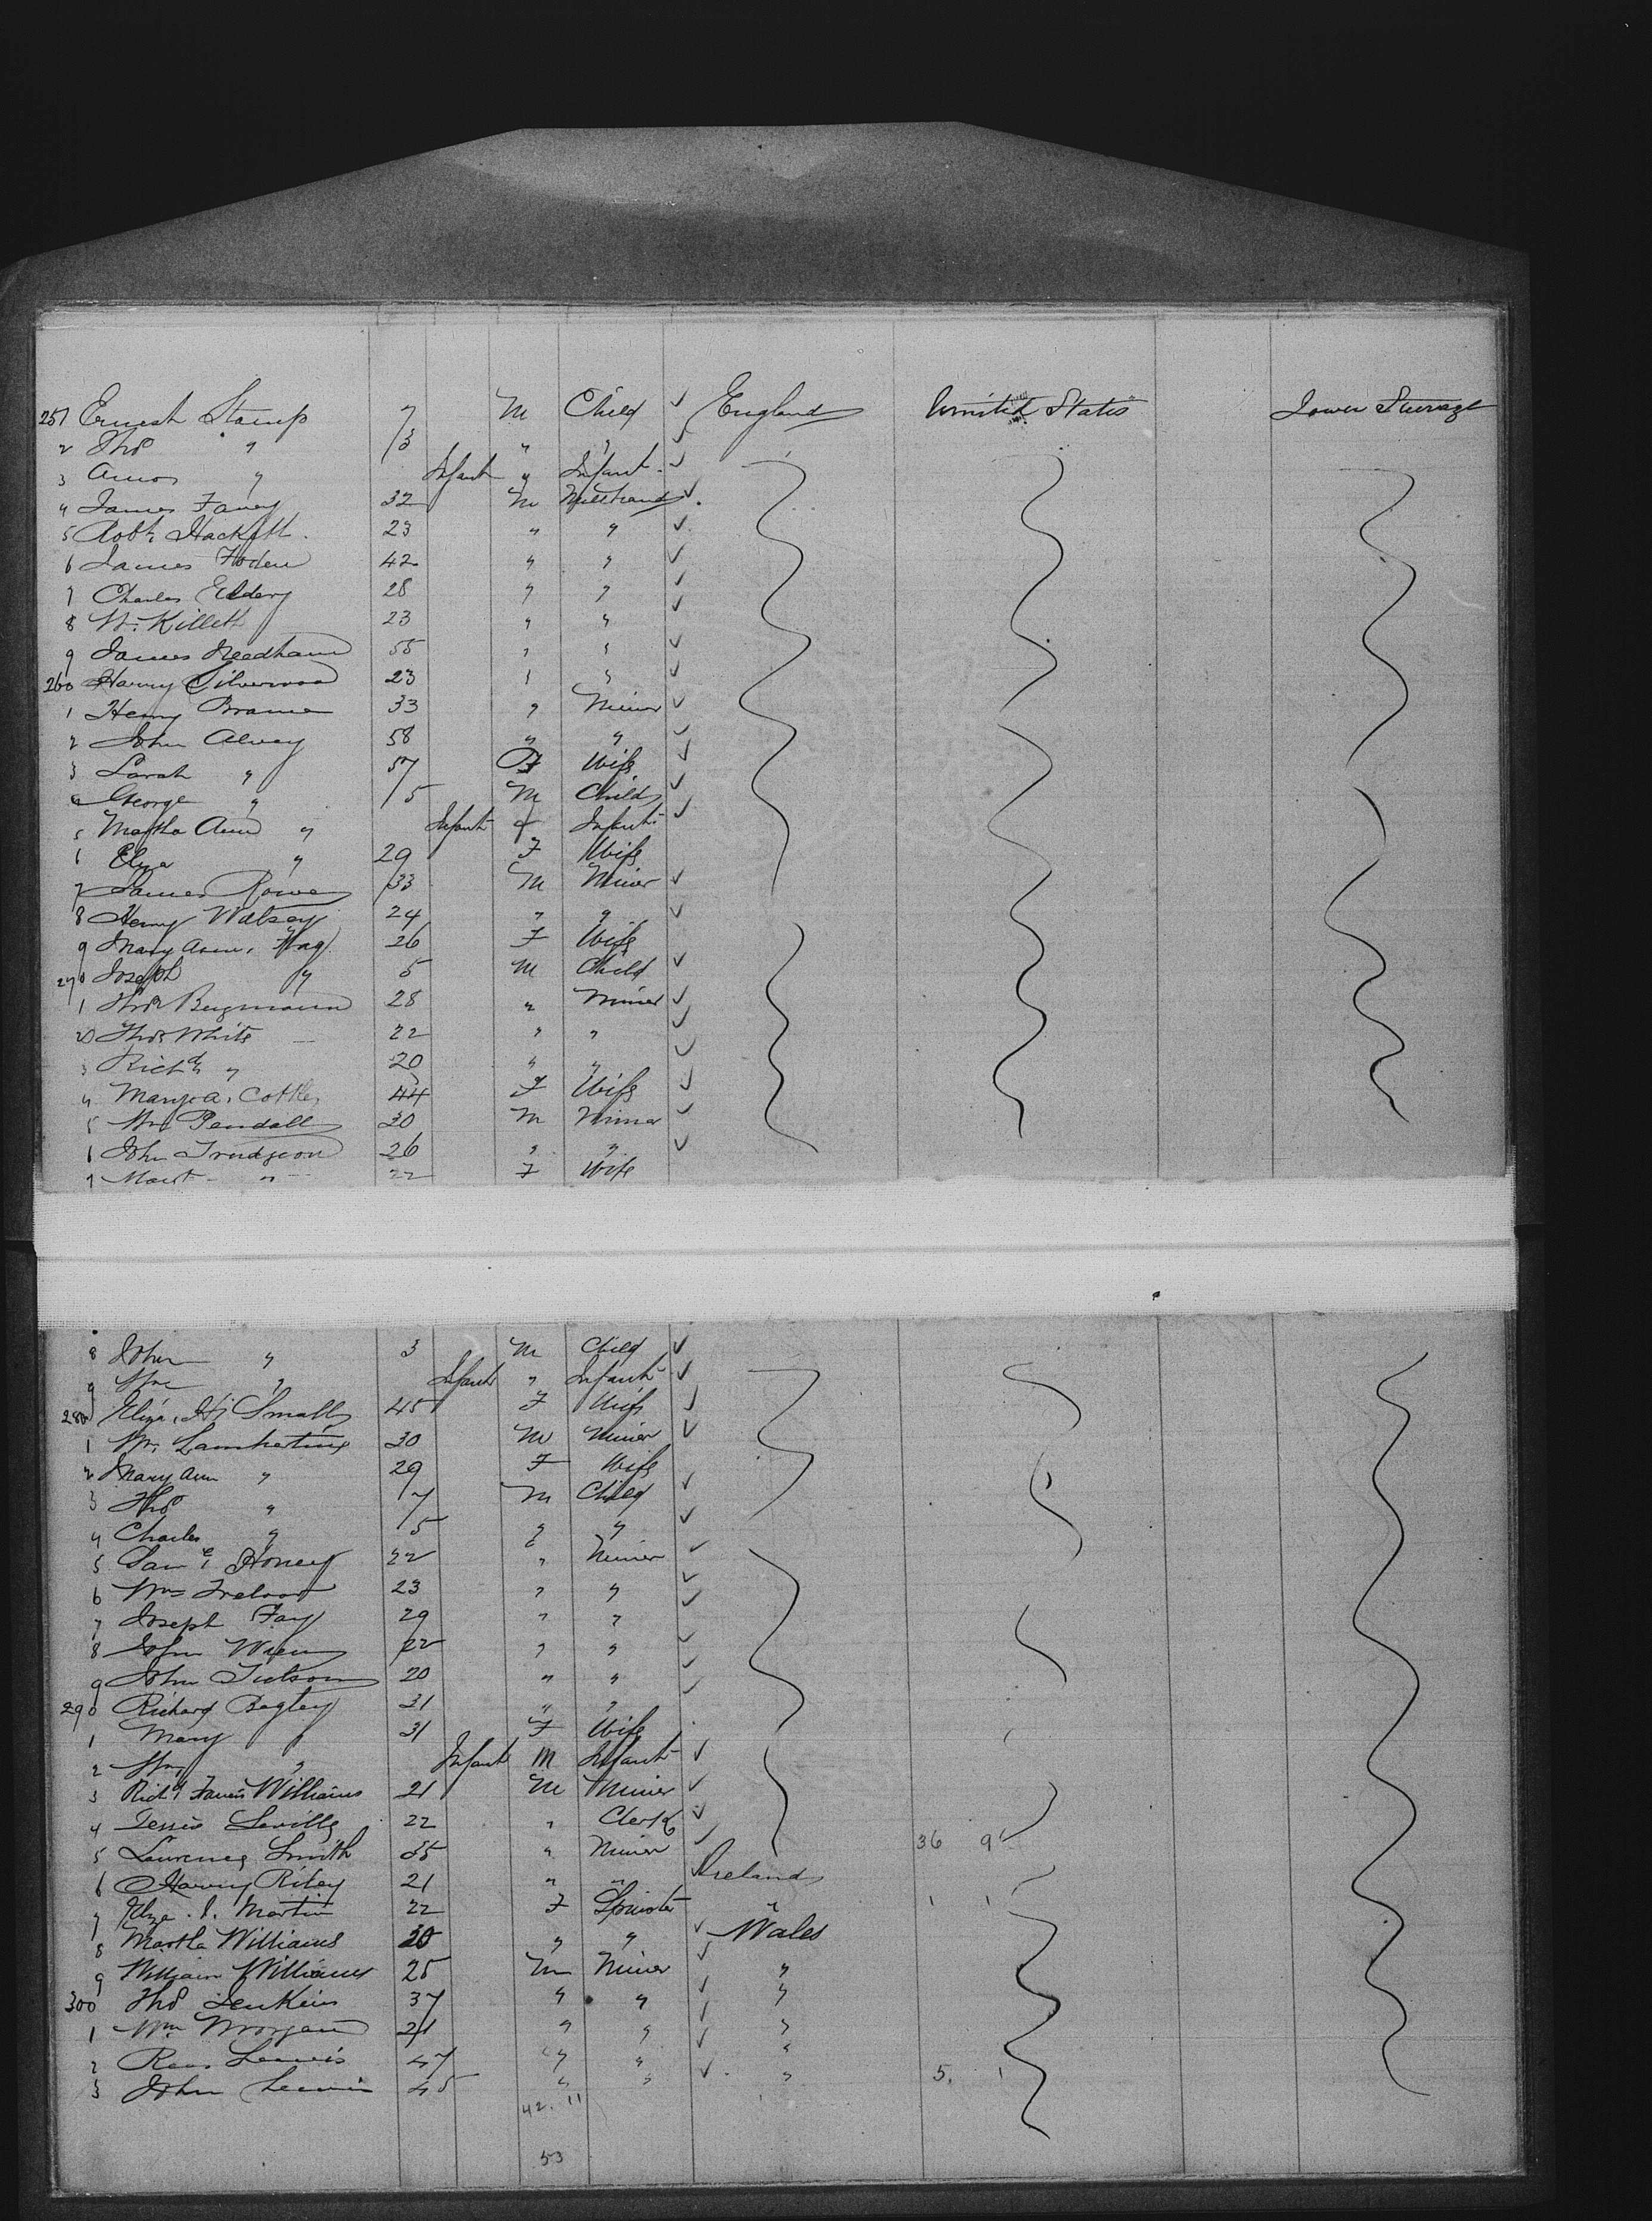 251 Ernest Stamp 7 M Child ✓ England United States Lower Steerage
2 Thos " 3 " " ✓
3 Amos " Infant " Infant ✓
4 James 32 M Millhand ✓
5 Robt Hackett 23 " " ✓
6 James Foden 42 " " ✓
7 Charles 28 " " ✓
8 W. Killett 23 " " ✓
9 James Needham 55 " " ✓
260 Harry Silverwood 23 " " ✓
1 Henry 33 " Miner ✓
2 John Alvey 58 " " ✓
3 Sarah " 57 F Wife ✓
4 George " 5 M Child ✓
5 Martha Ann " Infant f Infant ✓
6 Eliza " 29 F Wife
7 James Rowe 33 M Miner ✓
8 Henry 24 " " ✓
9 Mary Ann 26 F Wife
270 Joseph " 5 M Child ✓
1 Thos 28 " Miner ✓
2 Thos White 22 " " ✓
3 Richd " 20 " " ✓
4 Mary A. Cottle 44 F Wife ✓
5 Wm Pendall 30 M Miner ✓
6 John Trudgeon 26 " " ✓
7 " 22 F Wife
8 John " 3 M Child ✓
9 Wm " Infant " Infant ✓
280 Eliza. H. Small 45 F Wife ✓
1 W. 30 M Miner ✓
2 Mary Ann " 29 F Wife
3 Thos " 7 M Child ✓
4 Charles " 5 " " ✓
5 Saml Honey 22 " Miner ✓
6 Wm 23 " " ✓
7 Joseph Fay 29 " " ✓
8 John 22 " " ✓
9 John 20 " " ✓
290 Richard Bagley 31 " " ✓
1 Mary " 31 F Wife
2 Wm " Infant M Infant ✓
3 Richd Williams 21 M Miner ✓
4 22 " Clerk ✓
5 Lawrence Smith 35 " Miner ✓ 36 9
6 Harry Riley 21 " " ✓ Ireland
7 Eliza. J. Martin 22 F Spinster " 1 1
8 Martha Williams 20 " " ✓ Wales
9 William Williams 25 M Miner ✓ "
300 Thos Jenkins 37 " " ✓ "
1 Wm Morgan 21 " " ✓ "
2 Rees Lewis 47 " " ✓ "
3 John Lewis 45 " " ✓ " 5. 1
42. 11
53